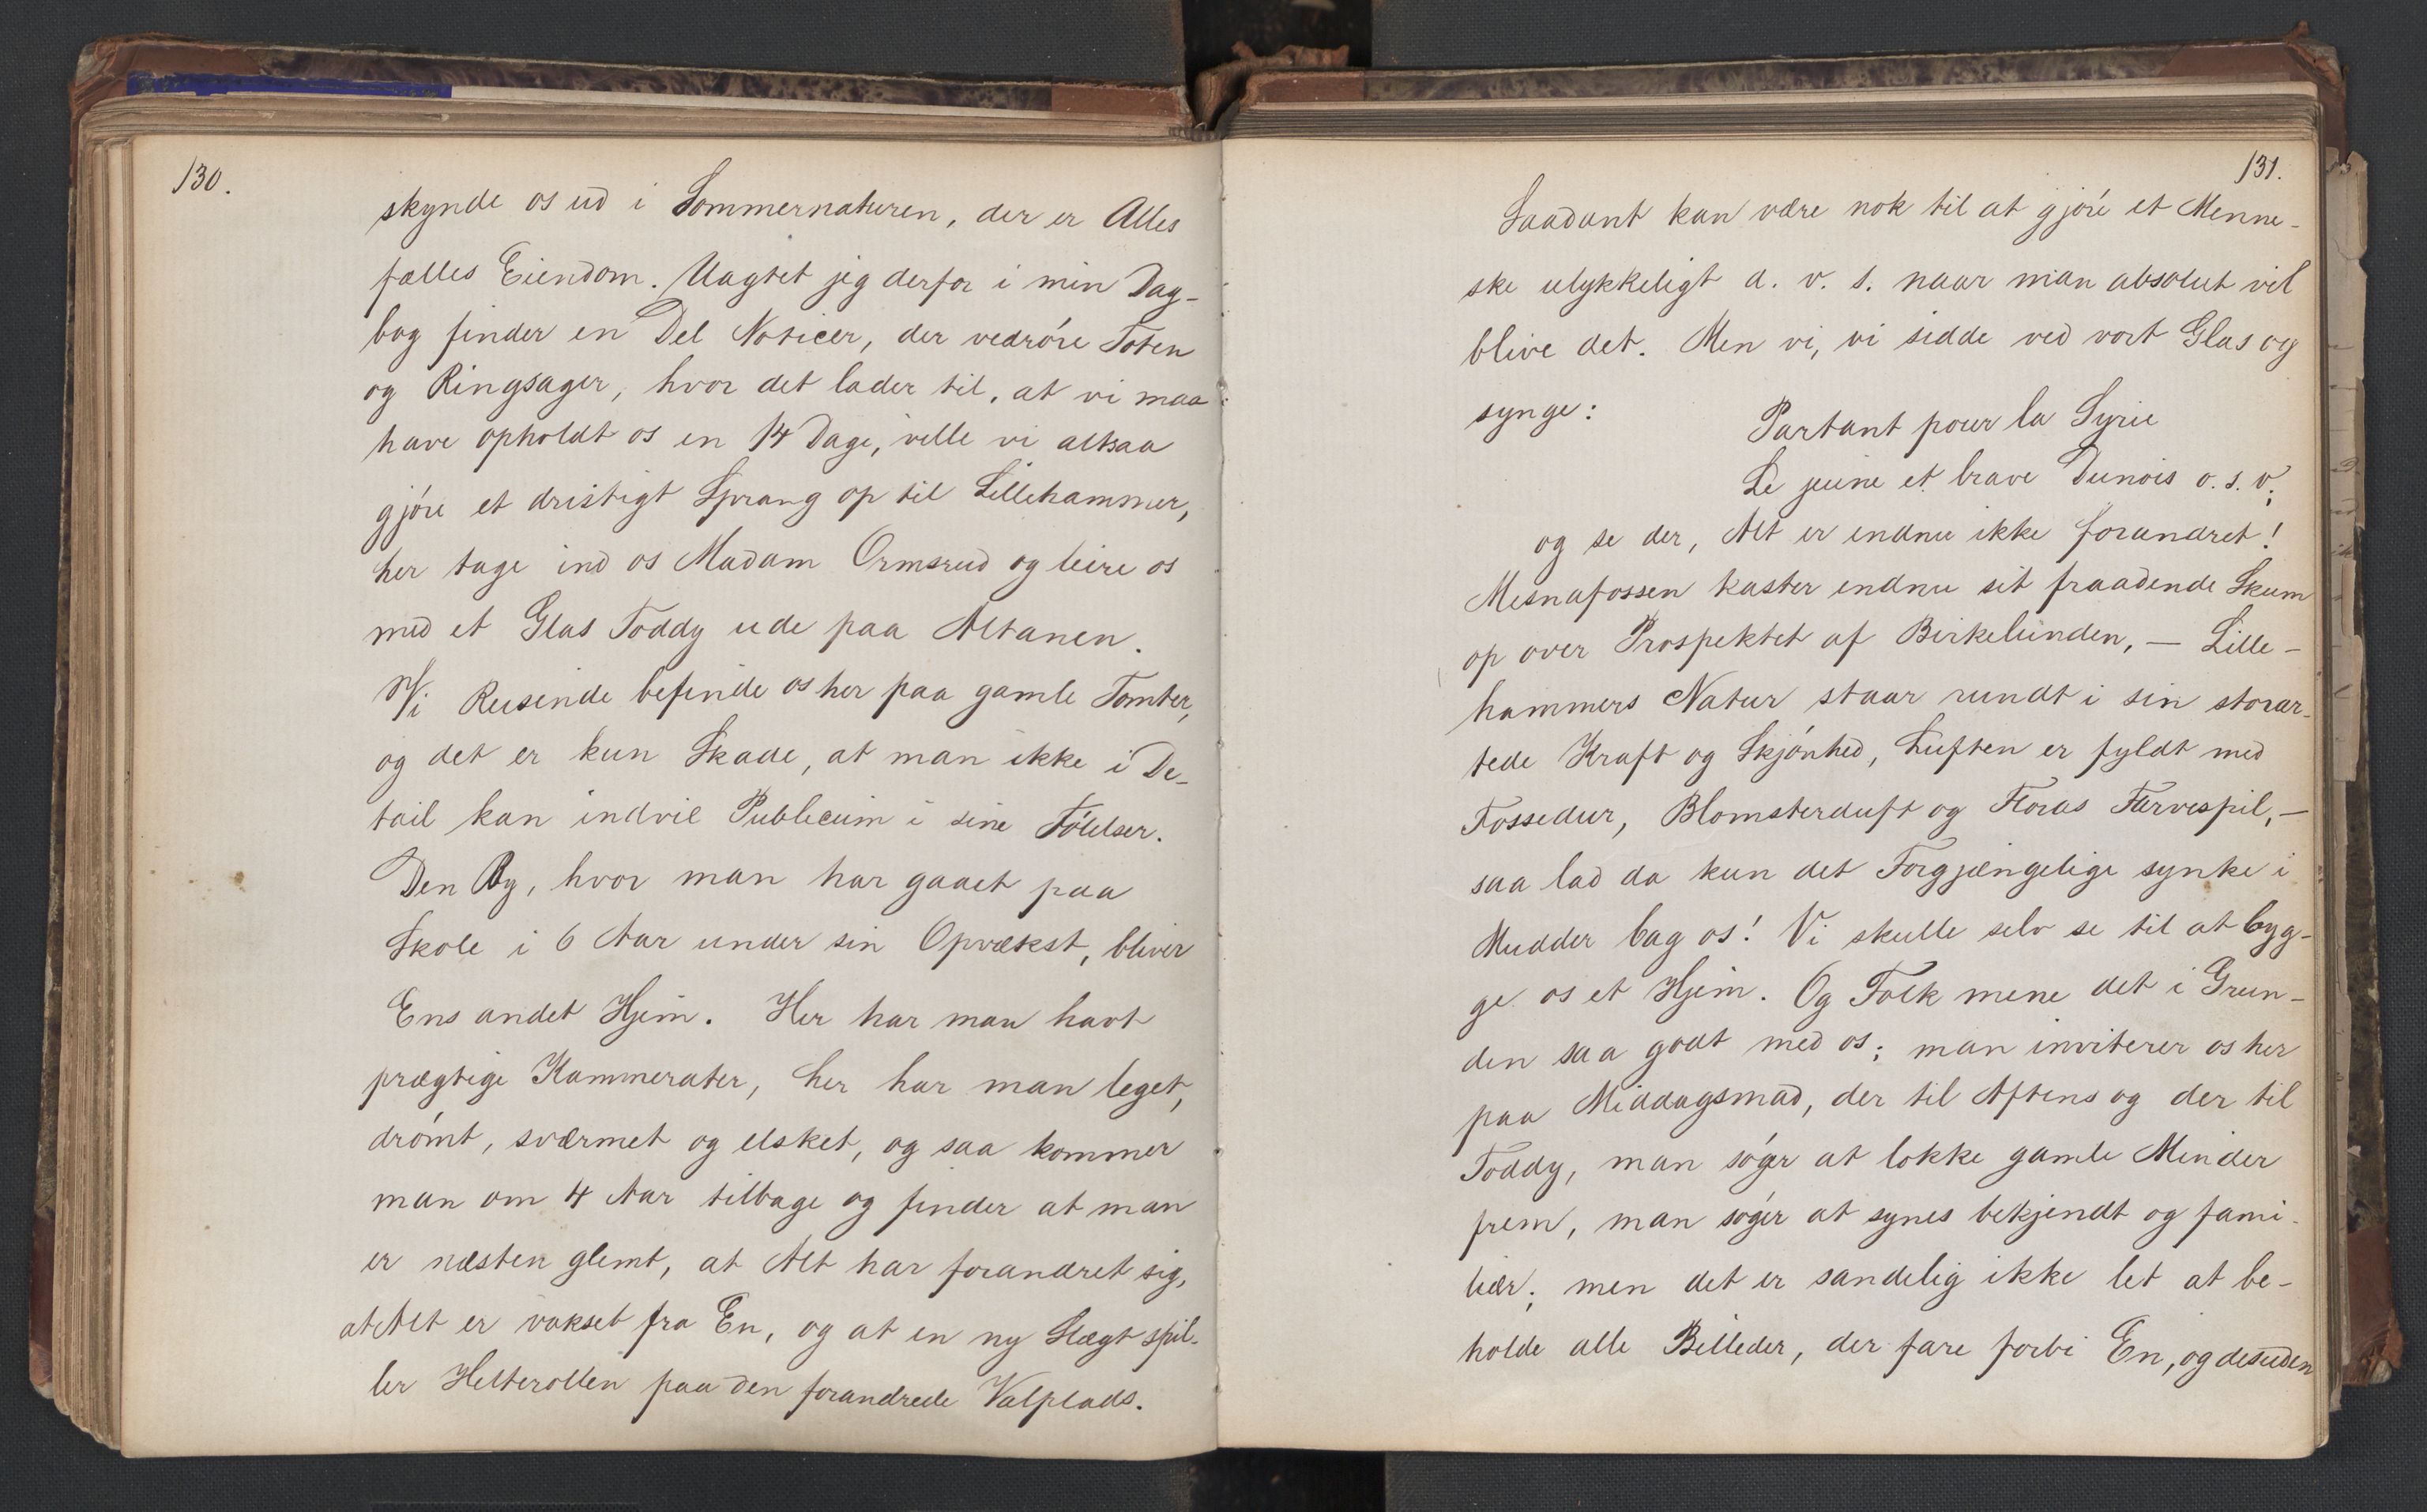 130.
skynde os ud i Sommernaturen, der er Alles
fælles Eiendom. Uagtet jeg derfor i min Dag-
bog finder en Del Noticer, der vedróre Toten
og Ringsager, hvor det lader til, at vi maa
have opholdt os en 14 Dage, ville vi altsaa
gjóre et dristigt Sprang op til Lillehammer,
her tage ind os Madam Ormsrud og leire os
med et Glas Toddy ude paa Altanen.
Vi Reisende befinde os her paa gamle Tomter,
og det er kun Skade, at man ikke i De-
tail kan indvie Publicum i sine Fólelser.
Den By, hvor man har gaaet paa
Skole i 6 Aar under sin Opvækst, bliver
Ens andet Hjem. Her har man havt
prægtige Kammerater, her har man leget,
drómt, sværmet og elsket, og saa kommer
man om 4 Aar tilbage og finder at man
er næsten glemt, at Alt har forandret sig,
at Alt er vokset fra En, og at en ny Slægt spil-
ler Helterollen paa den forandrede Valplads.
131.
Saadant kan være nok til at gjóre et Menne-
ske ulykkeligt d. v. s. naar man absolut vil
blive det. Men vi, vi sidde ved vort Glas og
synge:
Partant pour la Syrie
Le jeune et brave Dunois o. s. v.
og se der, Alt er endnu ikke forandret!
Mesnafossen kaster endnu sit fraadende Skum
op over Prospektet af Birkelunden, — Lille-
hammers Natur staar rundt i sin storar-
tede Kraft og Skjónhed, Luften er fyldt med
Fossedur, Blomsterduft og Floras Farvespil, —
saa lad da kun det Forgjængelige synke i
Mudder bag os! Vi skulle selv se til at byg-
ge os et Hjem. Og Folk mene det i Grun-
den saa godt med os; man inviterer os her
paa Middagsmad, der til Aftens og der til
Toddy, man sóger at lokke gamle Minder
frem, man sóger at synes bekjendt og fami-
liær; men det er sandelig ikke let at be-
holde alle Billeder, der fare forbi En, og desuden